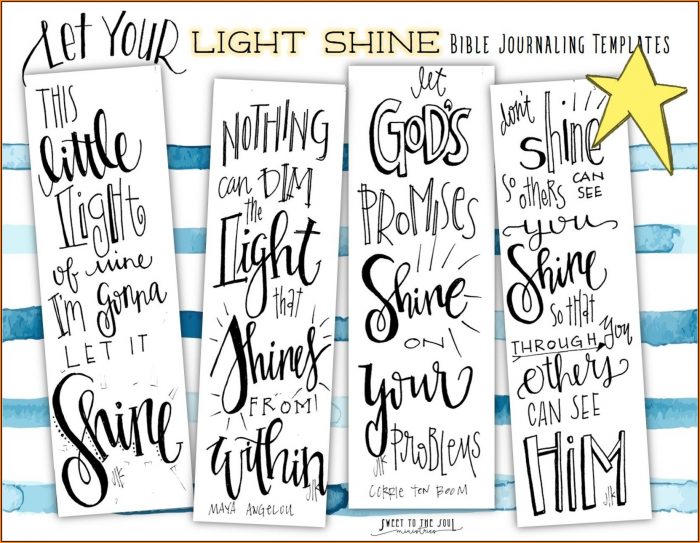 Let YOUR LIGHT SHINE BIBLE JOURNALING TEMPLATES
THIS
little
light
of mine
I'm gonna
LET IT
Shine
jlk
NOTHING
can DIM
the
Light
that
Shines
FROM
within
jlk
MAYA ANGELOU
let
GOD'S
PROMISES
Shine
ON
your
PROBLEMS
jlk
CORRIE TEN BOOM
don't
shine
so others CAN
SEE
you
Shine
so that
THROUGH you
others
CAN SEE
HIM
jlk
SWEET TO THE SOUL
ministries